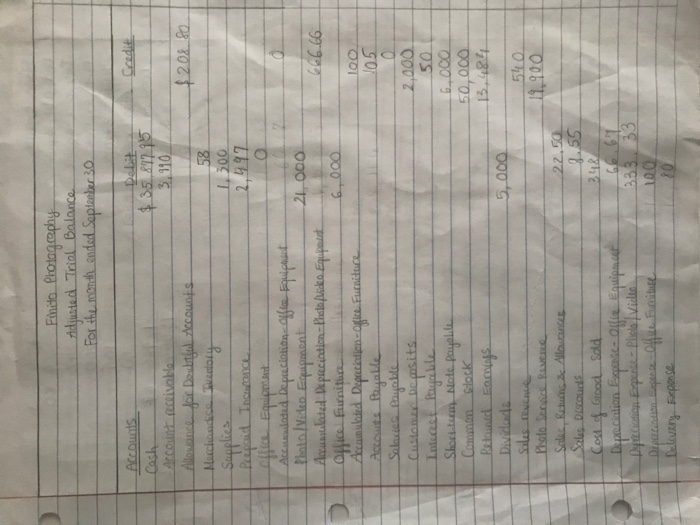 Finito Photography
Adjusted Trial Balance
For the month ended September 30
Accounts Debit Credit
Cash $35,897.95
Account receivable 3,910
Allowance for Doubtful Accounts $208.80
Merchandise Inventory 58
Supplies 1,300
Prepaid Insurance 2,497
Office Equipment 0
Accumulated Depreciation-Office Equipment 0
Photo/Video Equipment 21,000
Accumulated Depreciation-Photo/Video Equipment 666.66
Office Furniture 6,000
Accumulated Depreciation-Office Furniture 100
Accounts Payable 105
Salaries Payable 0
Customer Deposits 2,000
Interest Payable 50
Short-term Note Payable 6,000
Common Stock 50,000
Retained Earnings 13,484
Dividends 5,000
Sales Revenue 540
Photo Service Revenue 19,900
Sales Returns & Allowances 22.50
Sales Discounts 8.55
Cost of Good Sold 348
Depreciation Expense-Office Equipment 66.67
Depreciation Expense-Photo/Video 333.33
Depreciation Expense Office Furniture 100
Delivery Expense 80